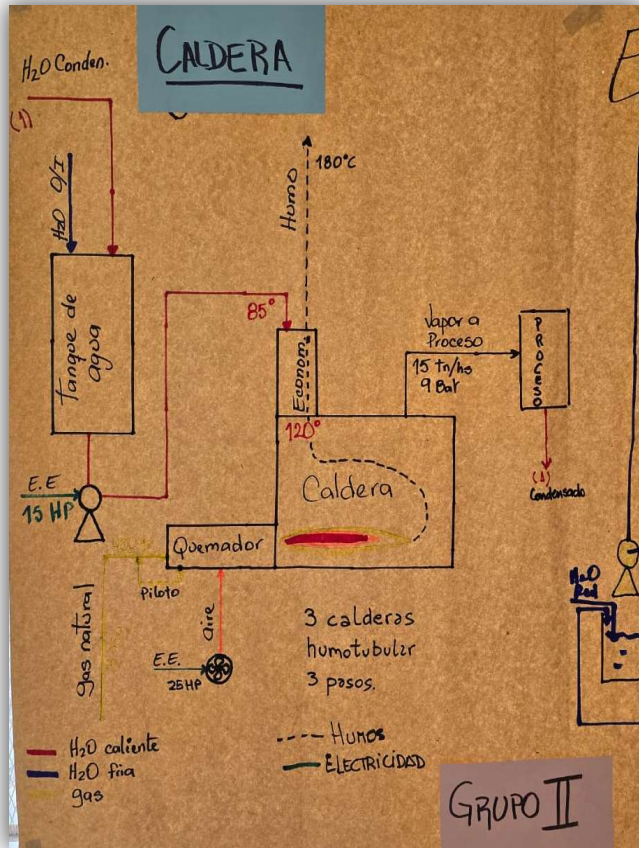 CALDERA
H2O Conden.
(1)
H2O O/I
Tanque de
agua
E.E
15 HP
85°
Humo
180°C
Econom.
120°
Caldera
Vapor a
Proceso
15 tn/hs
9 Bar
PROCESO
(1)
Condensado
Quemador
Piloto
gas natural
aire
E.E.
25HP
3 calderas
humotubular
3 pasos.
H2O caliente
H2O fria
gas
Humos
ELECTRICIDAD
GRUPO II
H2O
Red